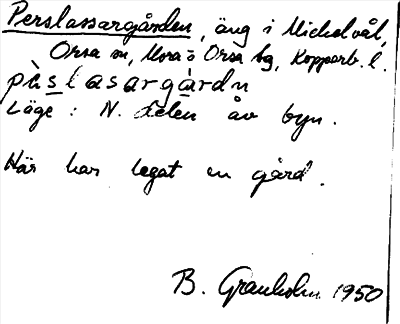 Perslassargården, äng i Mickelvål,
Orsa sn, Mora o Orsa hg, Kopparb. l.
pæ̀slasargàrdn
Läge: N. delen av byn.
Här har legat en gård.
B. Granholm 1950